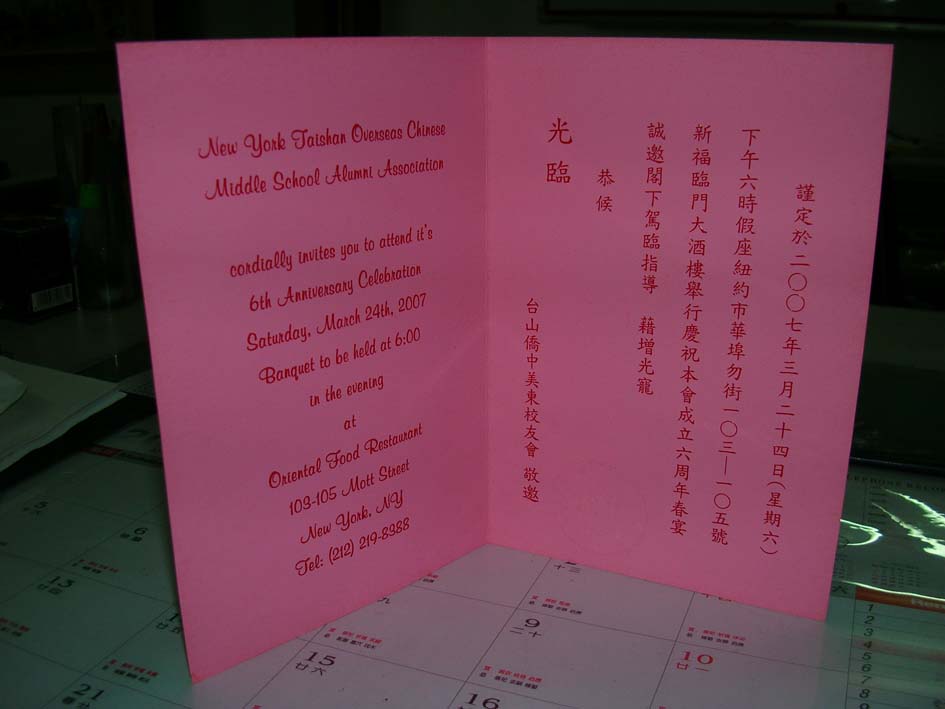 New York Taishan Overseas Chinese
Middle School Alumni Association
cordially invites you to attend it's
6th Anniversary Celebration
Saturday, March 24th, 2007
Banquet to be held at 6:00
in the evening
at
Oriental Food Restaurant
103-105 Mott Street
New York, NY
Tel: (212) 219-8988
謹定於二〇〇七年三月二十四日(星期六)
下午六時假座紐約市華埠勿街一〇三—一〇五號
新福臨門大酒樓舉行慶祝本會成立六周年春宴
誠邀閣下駕臨指導 藉增光寵
恭候
光臨
台山僑中美東校友會 敬邀
5
十六
6
13
廿四
15
廿六
21
9
二十
10
廿一
16
1
2
3
4
5
6
7
8
9